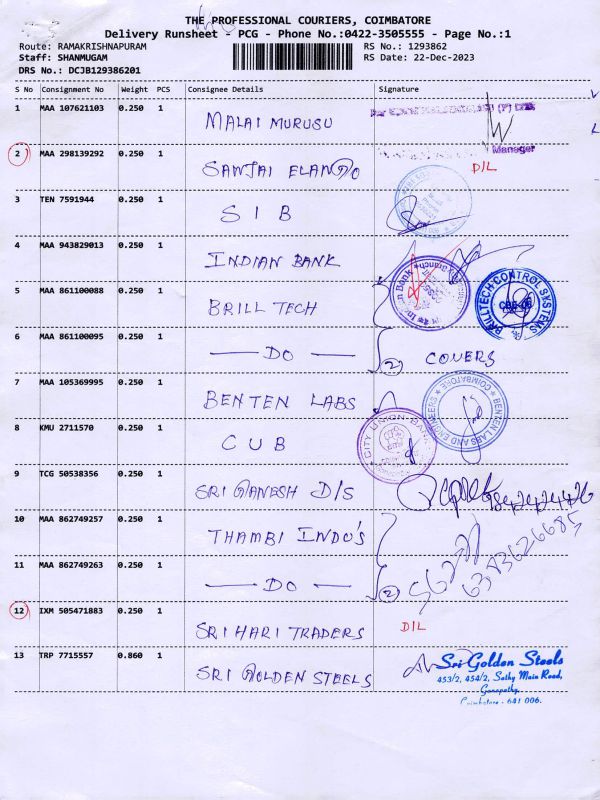 THE PROFESSIONAL COURIERS, COIMBATORE
Delivery Runsheet - PCG - Phone No.:0422-3505555 - Page No.:1
Route: RAMAKRISHNAPURAM RS No.: 1293862
Staff: SHANMUGAM RS Date: 22-Dec-2023
DRS No.: DCJB129386201
S No Consignment No Weight PCS Consignee Details Signature
1 MAA 107621103 0.250 1 MALAI MURUSU
Manager
2 MAA 298139292 0.250 1 SANJAI ELANGO D/L
3 TEN 7591944 0.250 1 SIB
4 MAA 943829013 0.250 1 INDIAN BANK
5 MAA 861100088 0.250 1 BRILL TECH
BRILLTECH CONTROL SYSTEMS
6 MAA 861100095 0.250 1 DO (2) COVERS
7 MAA 105369995 0.250 1 BENTEN LABS
BENTEN LABS AND ENGINEERS COIMBATORE
8 KMU 2711570 0.250 1 CUB
CITY UNION BANK
9 TCG 50538356 0.250 1 SRI GANESH D/S
10 MAA 862749257 0.250 1 THAMBI INDO'S
11 MAA 862749263 0.250 1 DO (2)
6383626685
12 IXM 505471883 0.250 1 SRI HARI TRADERS D/L
13 TRP 7715557 0.860 1 SRI GOLDEN STEELS
Sri Golden Steels
453/2, 454/2, Sathy Main Road,
Ganapathy,
Coimbatore - 641 006.